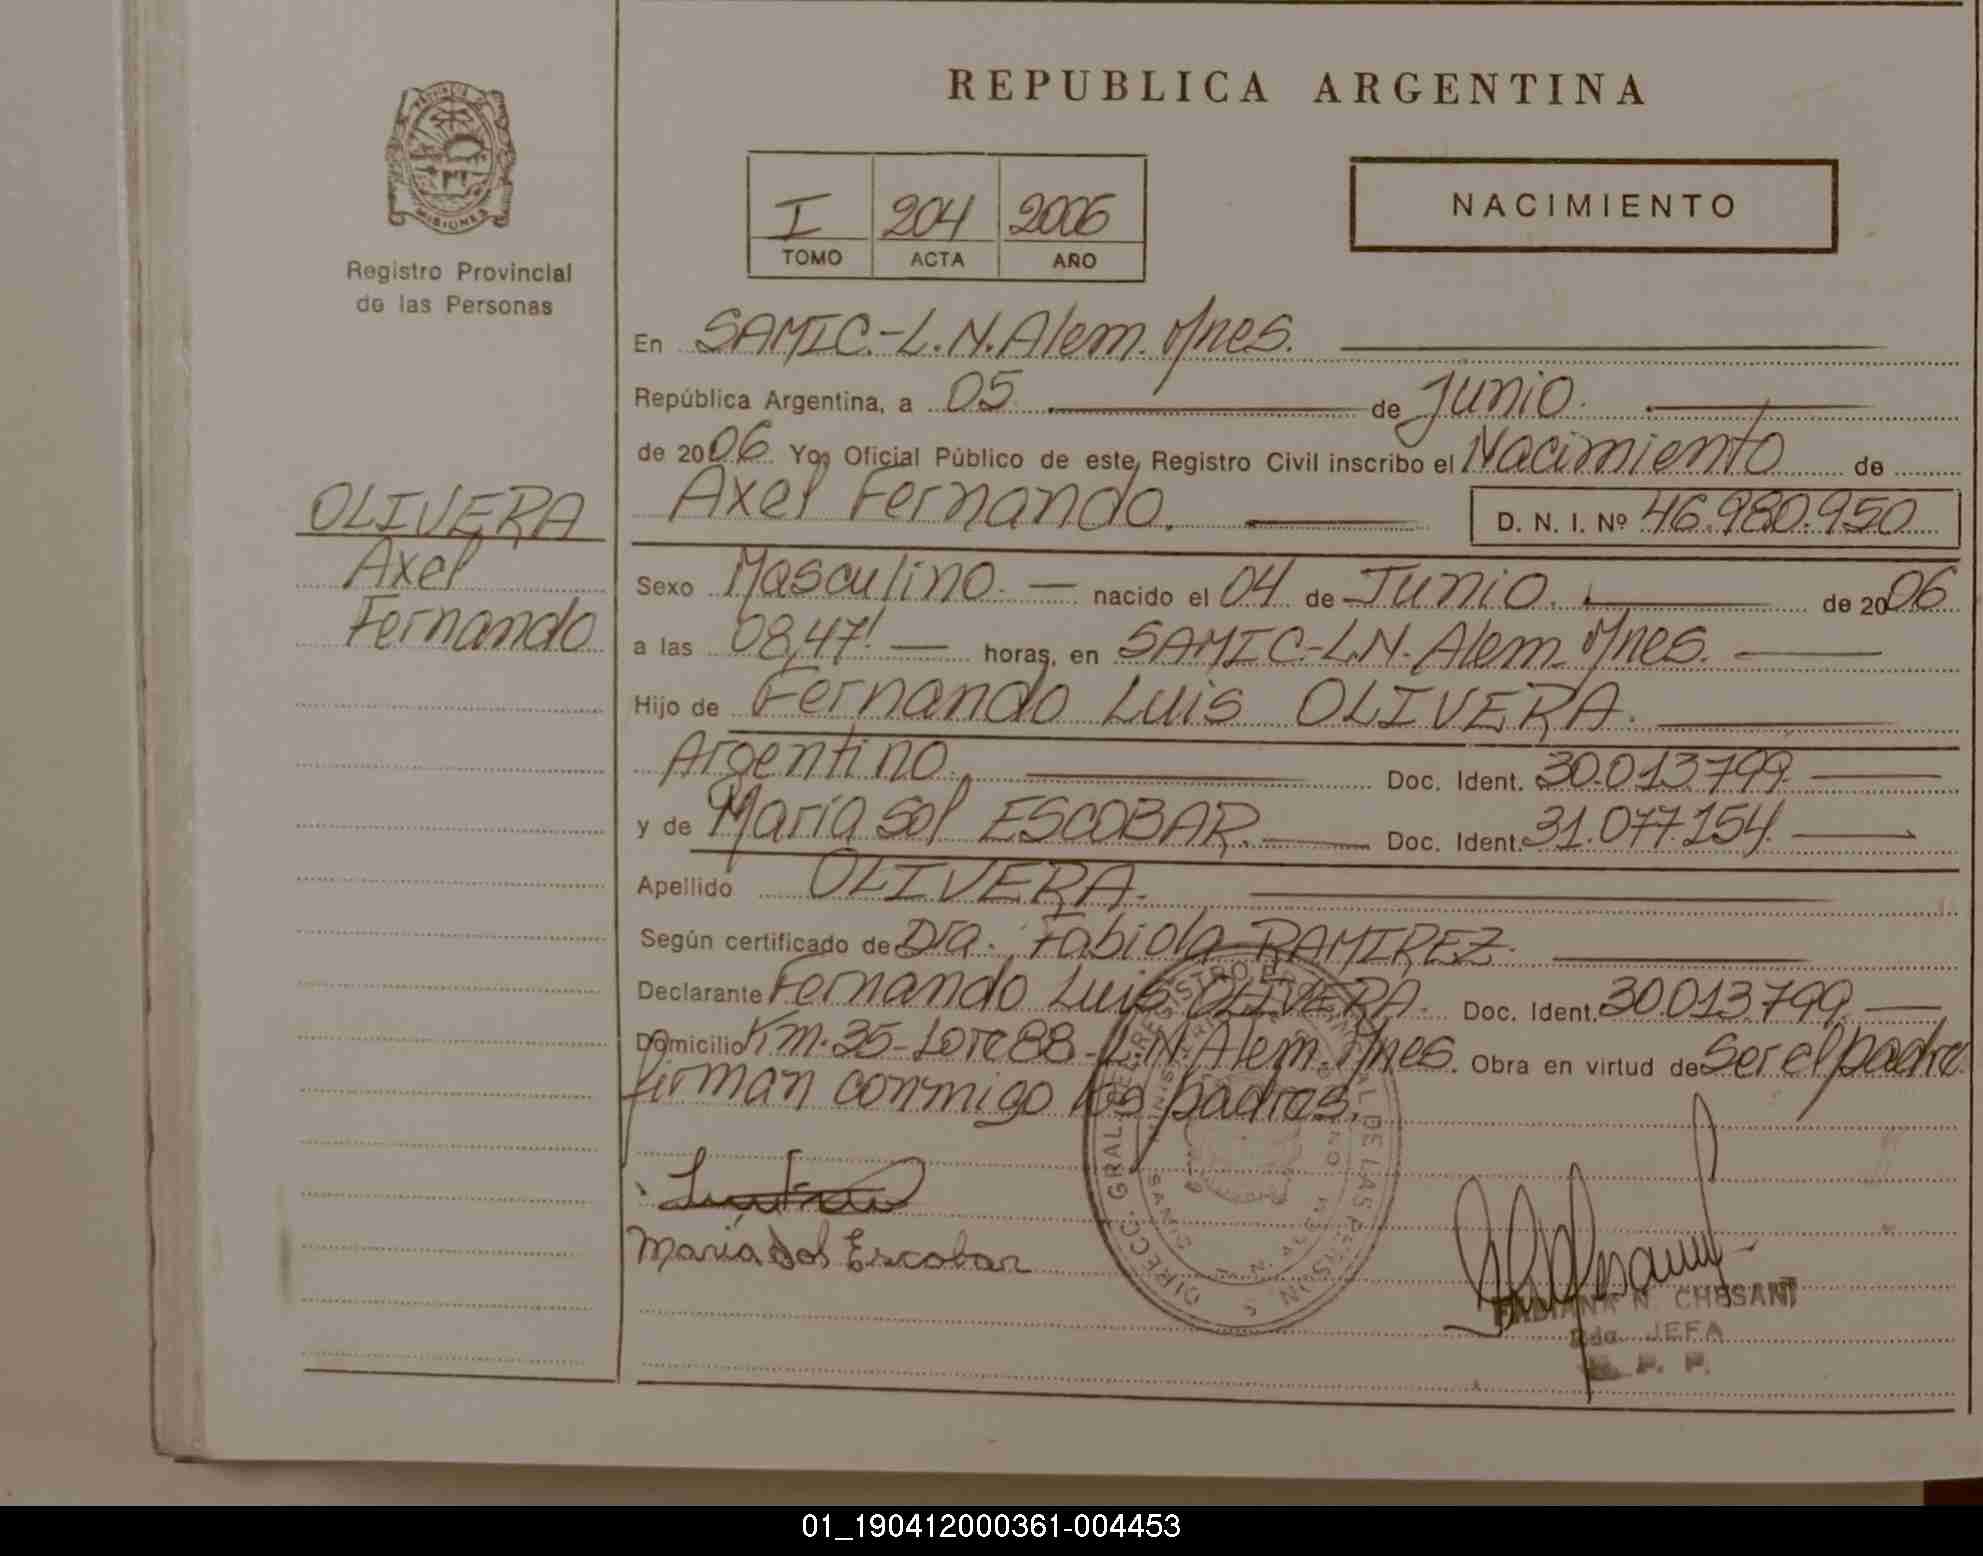 REPUBLICA ARGENTINA
PROVINCIA DE
MISIONES
Registro Provincial
de las Personas
I 204 2006
TOMO ACTA AÑO
NACIMIENTO
En SAMIC.-L.N.Alem. Mnes.
República Argentina, a 05 de Junio.
de 2006 Yo, Oficial Público de este, Registro Civil inscribo el Nacimiento de
Axel Fernando. D. N. I. Nº 46.980.950
OLIVERA
Axel
Fernando
Sexo Masculino. nacido el 04 de Junio. de 2006
a las 08,47! horas, en SAMIC.-L.N. Alem. Mnes.
Hijo de Fernando Luis OLIVERA.
Argentino. Doc. Ident. 30.013.799.
y de María Sol ESCOBAR. Doc. Ident. 31.077.154.
Apellido OLIVERA.
Según certificado de Dra. Fabiola RAMIREZ.
Declarante Fernando Luis OLIVERA. Doc. Ident. 30.013.799.
Domicilio Km.35-Lote 88-L.N.Alem. Mnes. Obra en virtud de Ser el padre
firman conmigo los padres.
Maria Sol Escobar
DIRECC. GRAL. DEL REGISTRO PROVINCIAL DE LAS PERSONAS
FABIANA N. CHESANI
JEFA
R. P. P.
01_190412000361-004453